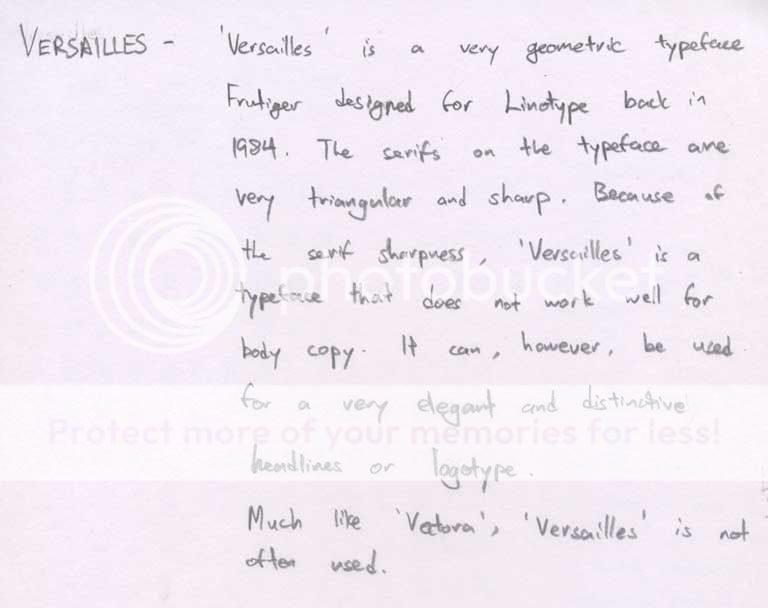 VERSAILLES - 'Versailles' is a very geometric typeface
Frutiger designed for Linotype back in
1984. The serifs on the typeface are
very triangular and sharp. Because of
the serif sharpness, 'Versailles' is a
photobucket
typeface that does not work well for
body copy. It can, however, be used
for a very elegant and distinctive
Protect more of your memories for less!
headlines or logotype.
Much like 'Vectora', 'Versailles' is not
often used.